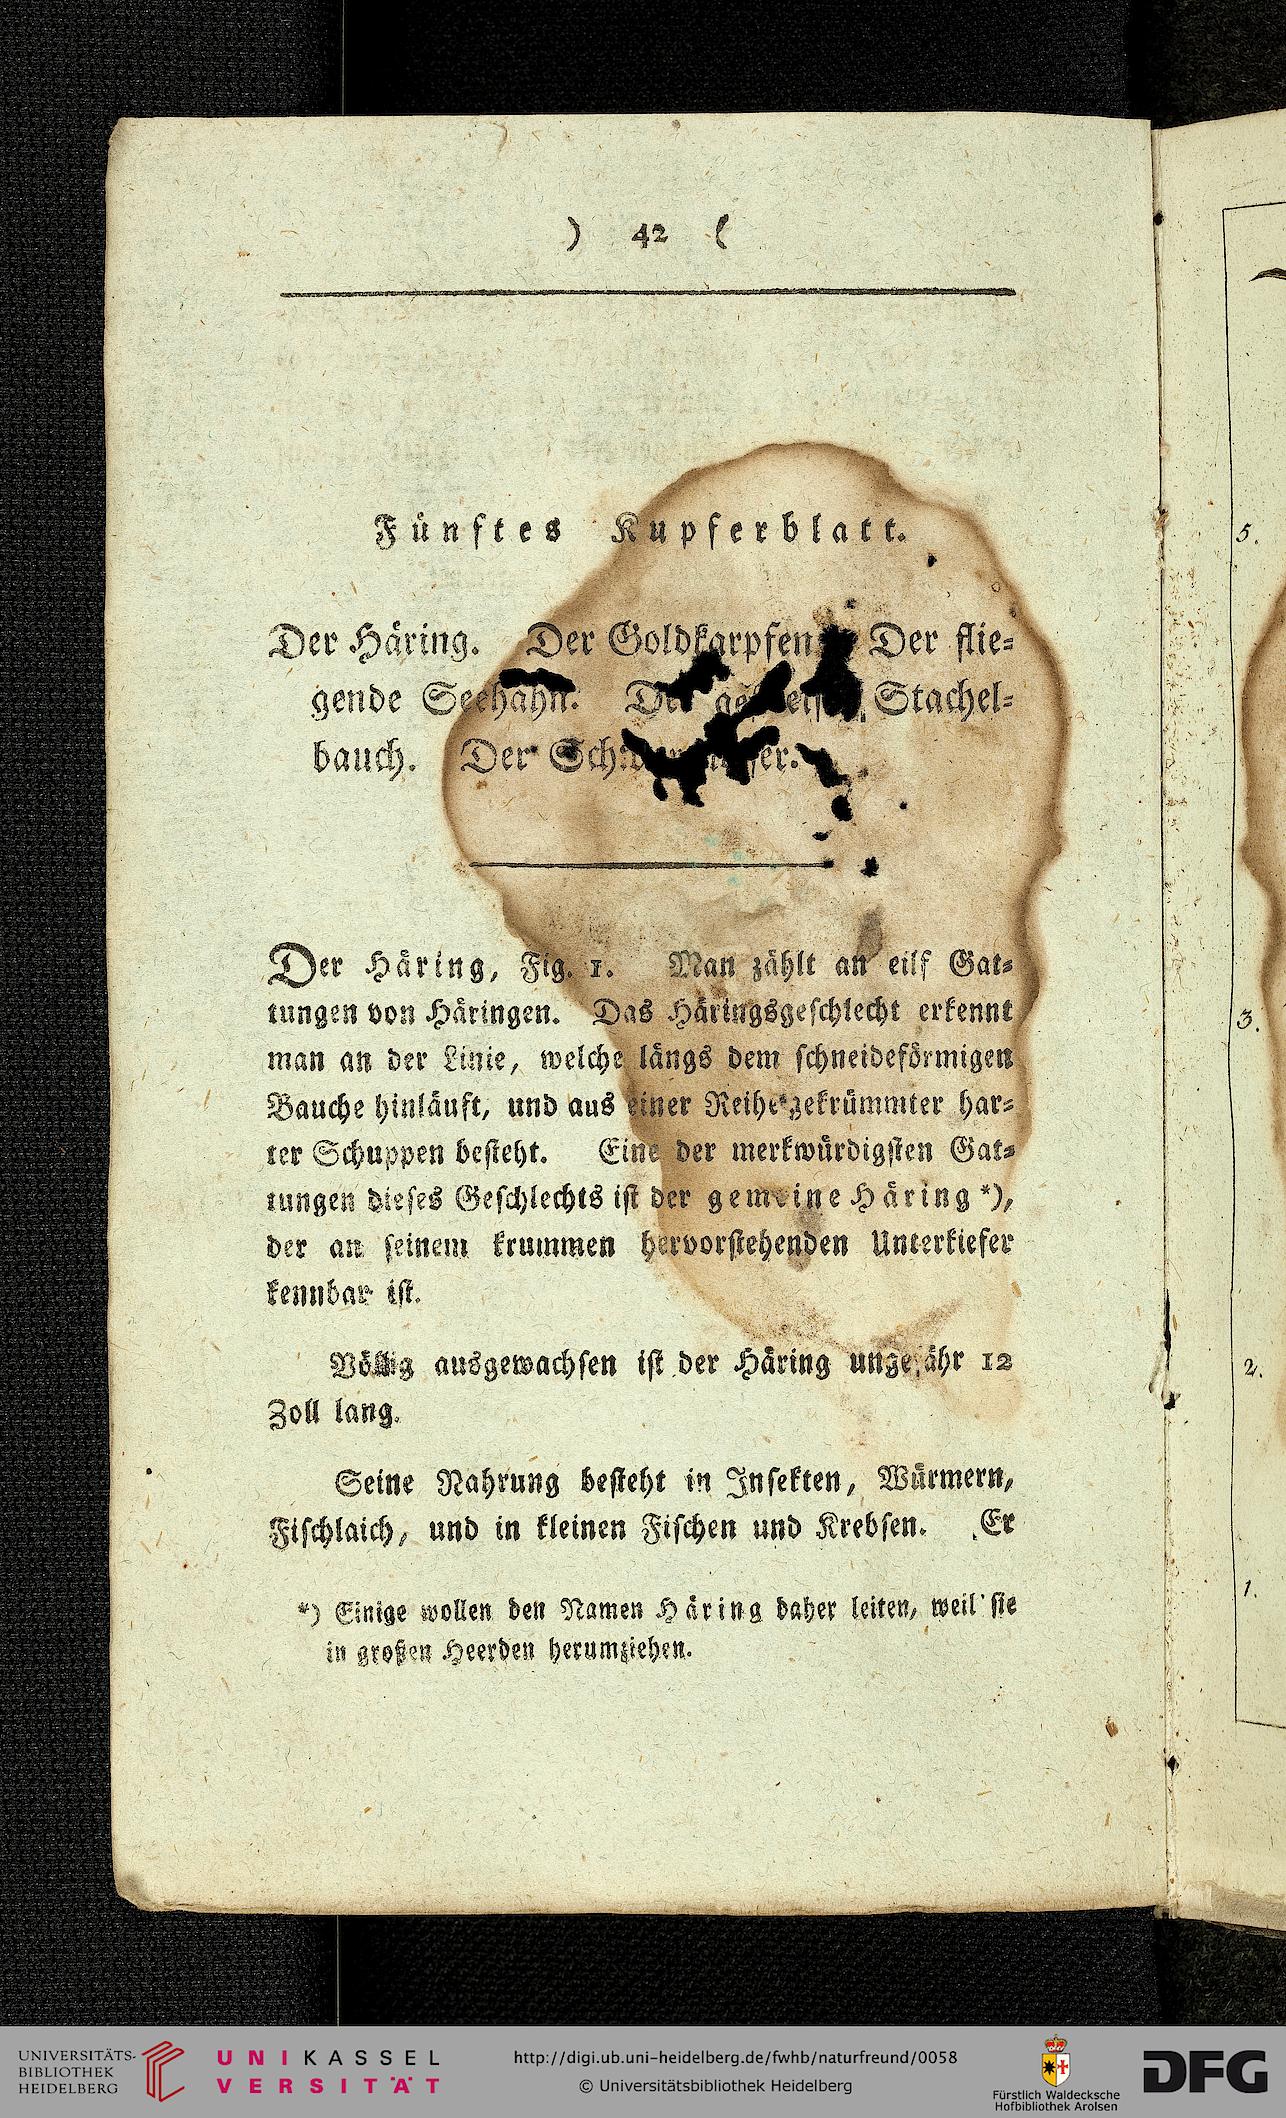 ) 42 (
Fünftes Kupferblatt.
Der Häring. Der Goldkarpfen Der flie=
gende Seehahn. Der Stachel=
bauch. Der
Der Häring, Fig. 1. Man zählt an eilf Gat=
tungen von Häringen. Das Häringsgeschlecht erkennt
man an der Linie, welche längs dem schneideförmigen
Bauche hinläuft, und aus einer Reihe gekrümmter har=
ter Schuppen besteht. Eine der merkwürdigsten Gat=
tungen dieses Geschlechts ist der gemeine Häring *),
der an seinem krummen hervorstehenden Unterkiefer
kennbar ist.
Völlig ausgewachsen ist der Häring ungefähr 12
Zoll lang.
Seine Nahrung besteht in Insekten, Würmern,
Fischlaich, und in kleinen Fischen und Krebsen. Er
*) Einige wollen den Namen Häring daher leiten, weil sie
in großen Heerden herumziehen.
5.
3.
2.
1.
UNIVERSITÄTS-
BIBLIOTHEK
HEIDELBERG
UNIKASSEL
VERSITÄT
http://digi.ub.uni-heidelberg.de/fwhb/naturfreund/0058
© Universitätsbibliothek Heidelberg
Fürstlich Waldecksche
Hofbibliothek Arolsen
DFG